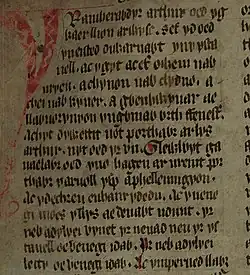 Yr amherawdyr arthur oed yg
kaer llion ar wysc. sef yd oed
yn eisted diwarnawt yn y ysta
uell. ac ygyt ac ef owein uab
uryen. a chynon uab clydno. a
chei uab kyner. a gwenhwyuar ae
llawuorynyon yn gwniaw wrth ffenestr.
A chyt dywettit uot porthawr ar lys
arthur. nyt oed yr vn. Glewlwyt ga
uaelawr oed yno hagen ar ureint por
thawr y aruoll ysp a phellennigyon.
ac y dechreu eu hanrydedu. ac y uene
gi moes y llys ae deuawt udunt. yr
neb adylyei vynet yr neuad neu yr ys
tauell oe benegi idaw. yr neb adylyei
letty oe benegi idaw. Ac ymperued llawr